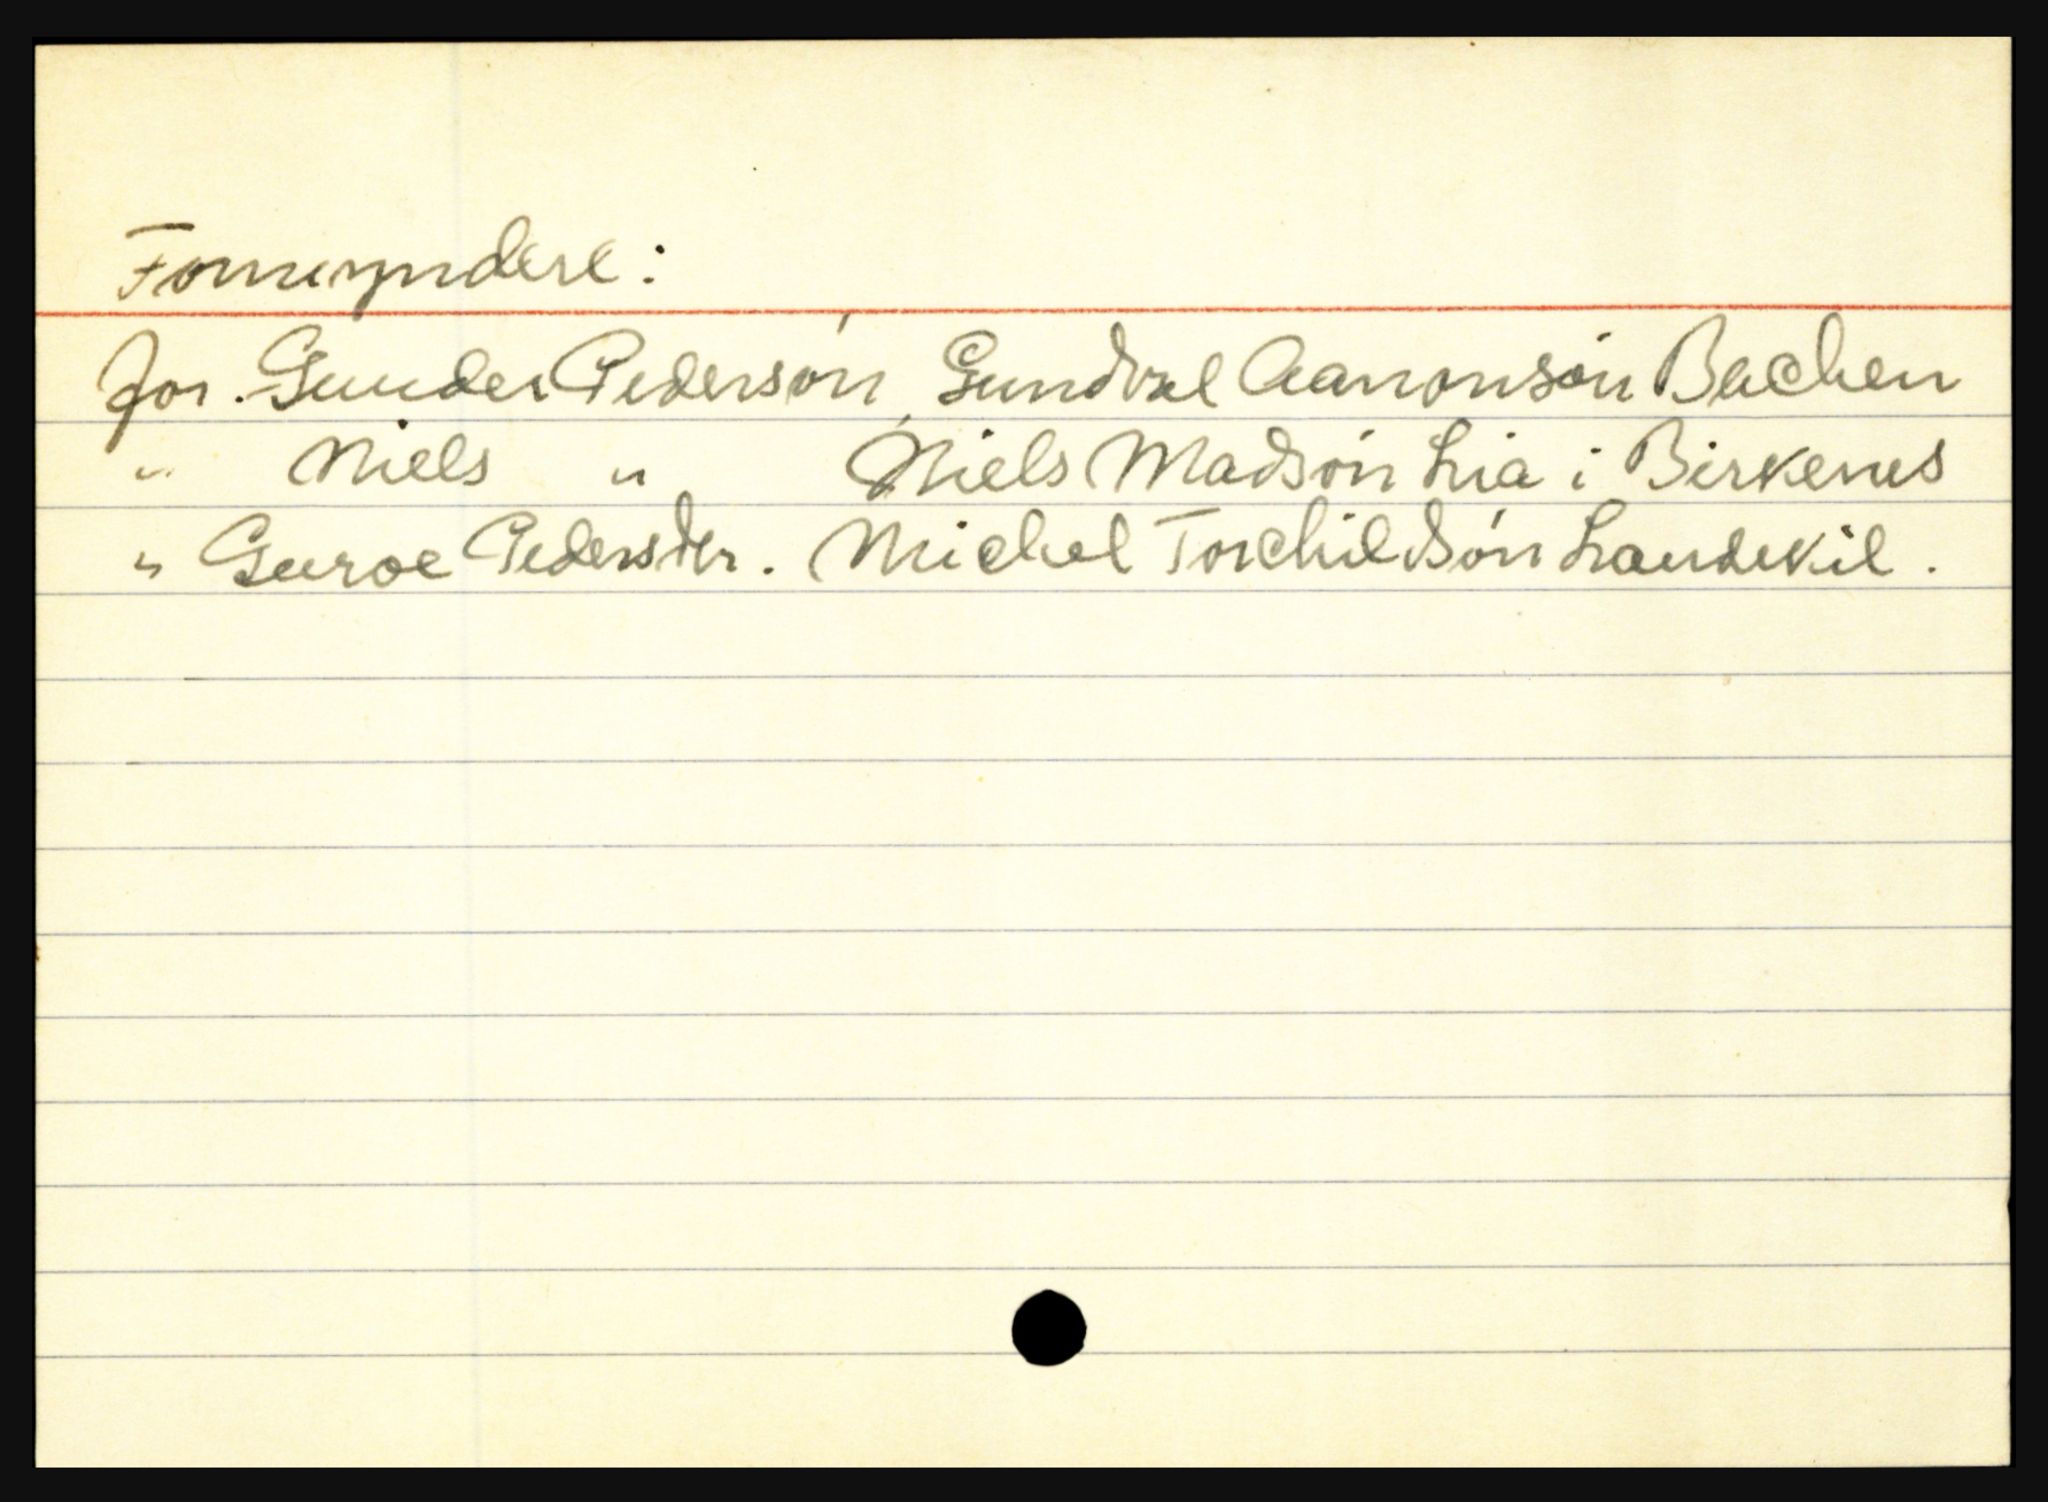 Formyndere:
for. Gunder Pedersøn, Gundval Aanonsøn Bachen
" Niels " Niels Madsøn Lia i Birkenes
" Guroe Pedersdtr. Michel Torchildsøn Landvkil.